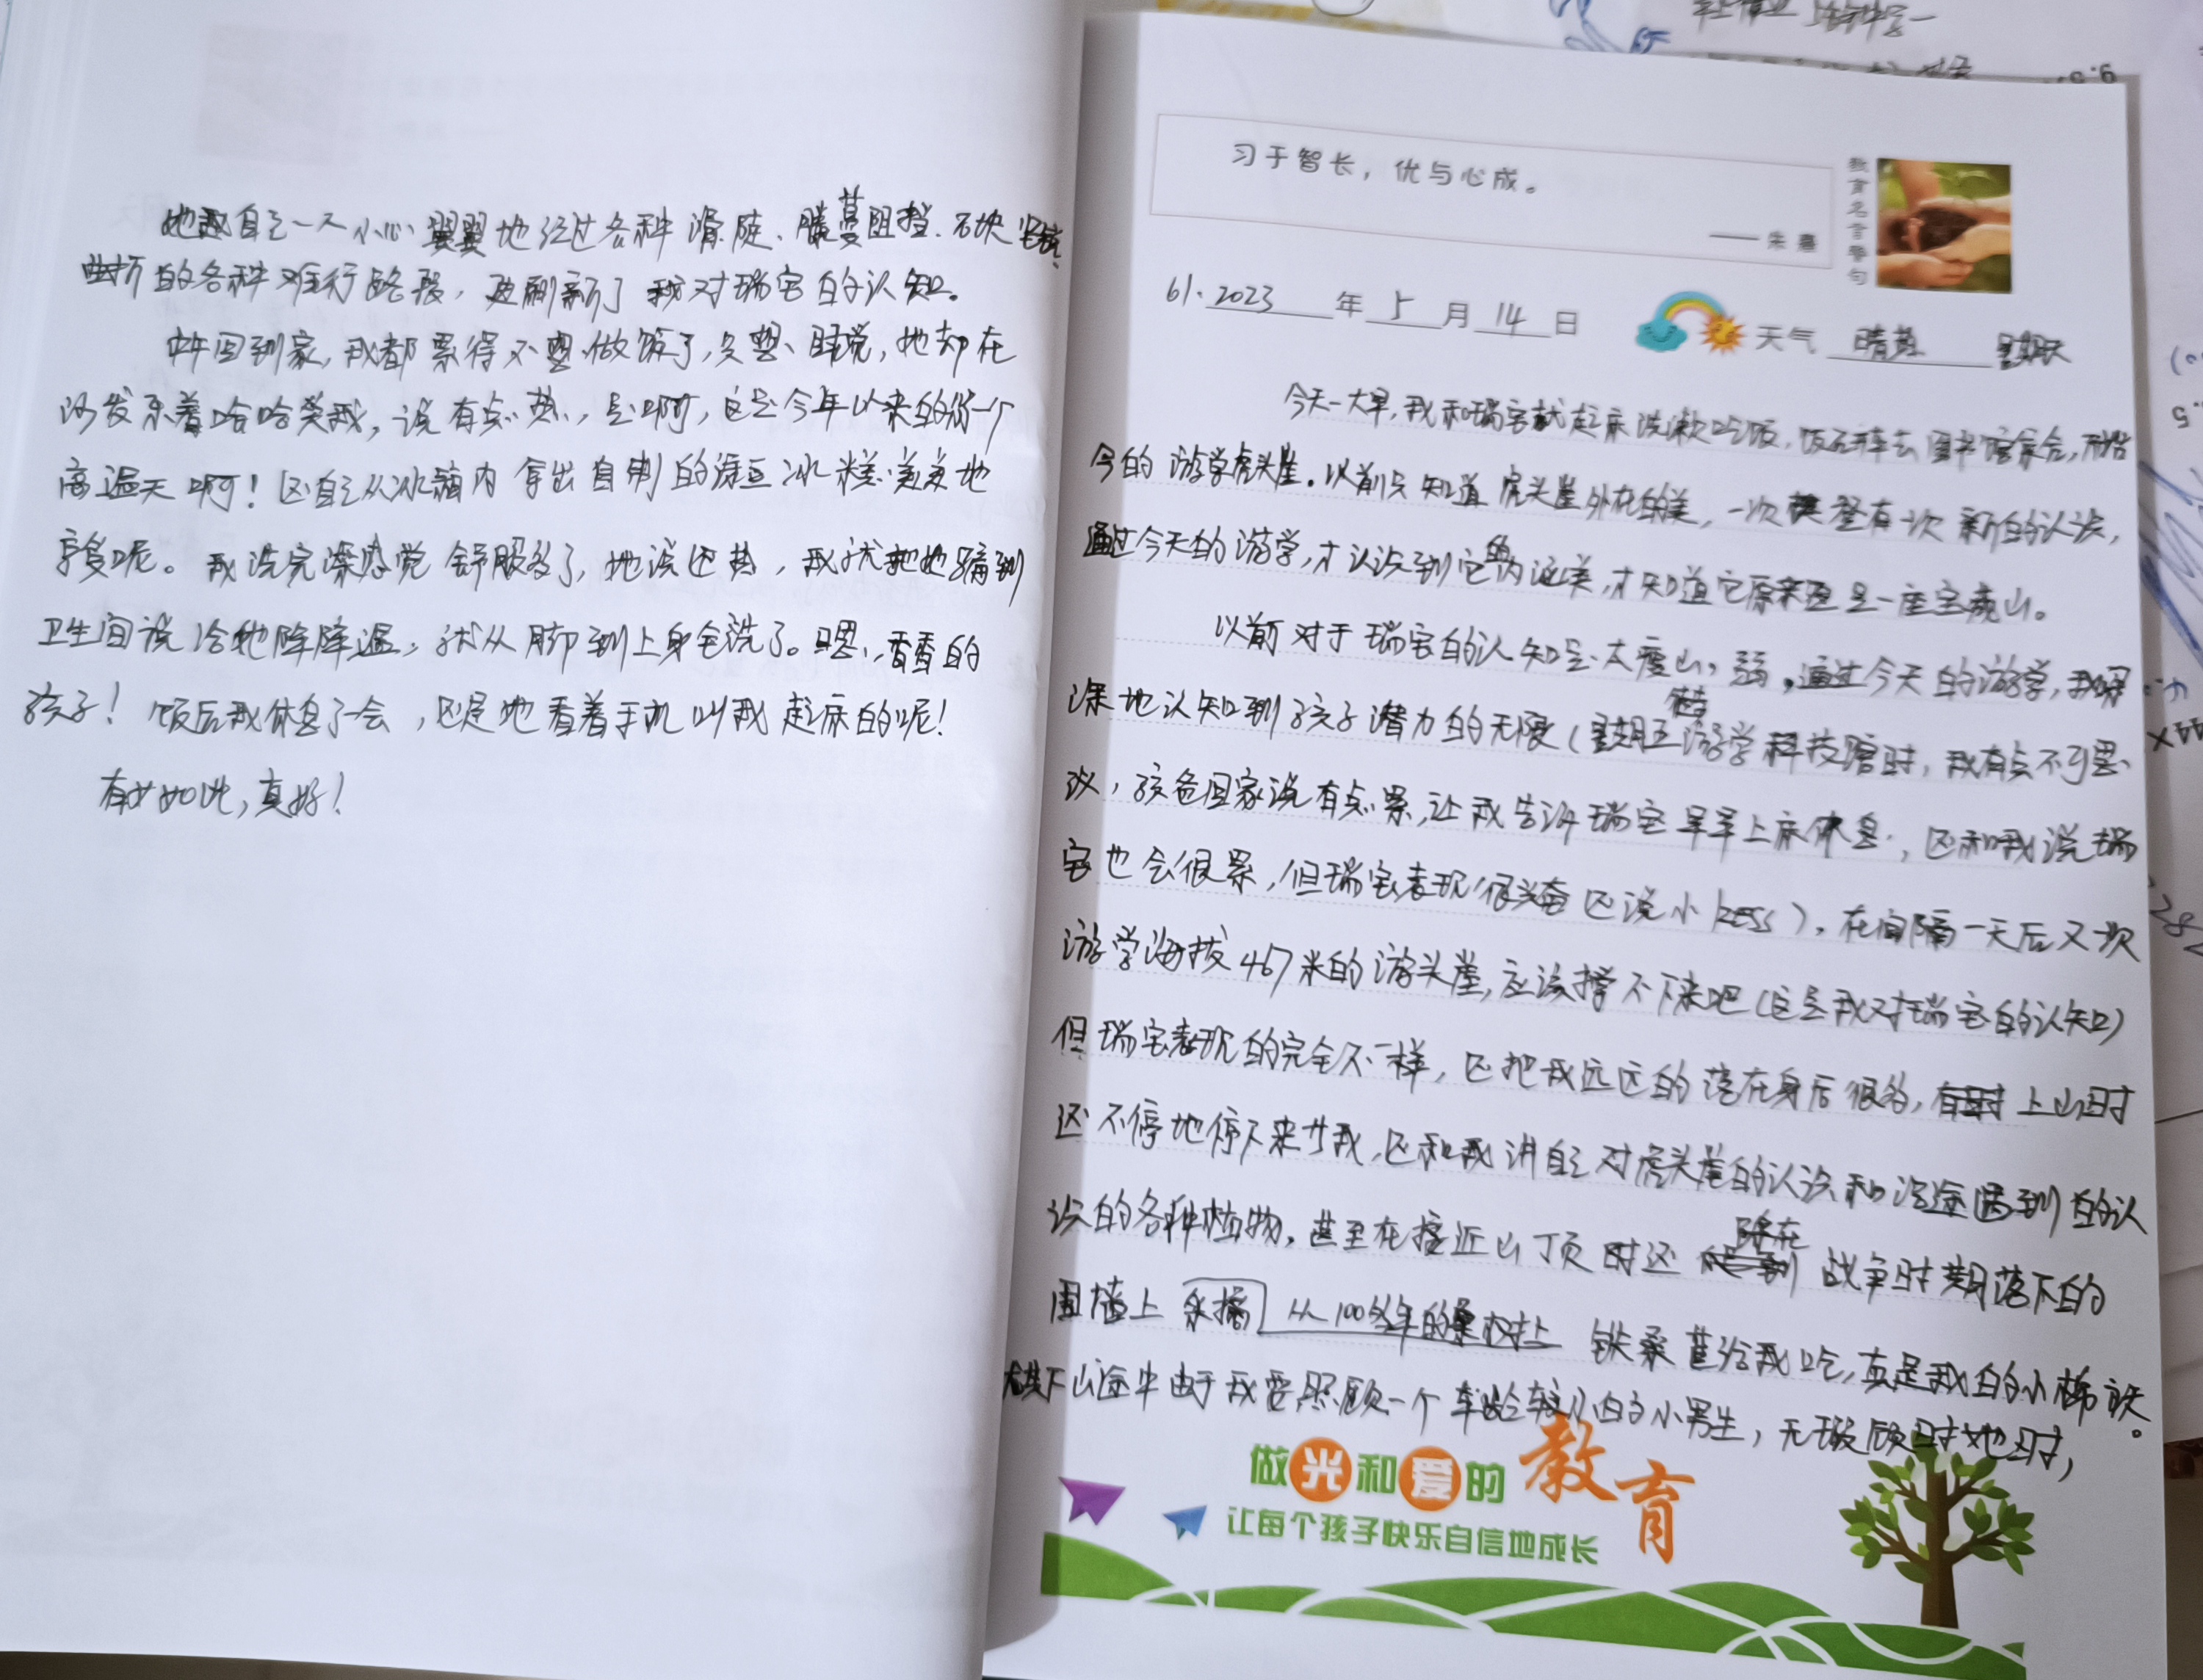 习于智长，优与心成。
—— 朱熹
教育名言警句
61. 2023 年 5 月 14 日 天气 晴热 星期天
今天一大早，我和瑞宝就起床洗漱吃饭，饭后开车去图书馆集合，开始
今的游学虎头崖。以前只知道虎头崖外在的美，一次攀登有一次新的认识，
通过今天的游学，才认识到它的内涵美，才知道它原来还是一座宝藏山。
以前对于瑞宝的认知是太瘦小，弱，通过今天的游学，我深
深地认知到孩子潜力的无限（星期五游学科技馆时，我有点不可思
议，孩爸回家说有点累，让我告诉瑞宝早早上床休息，还和我说瑞
宝也会很累，但瑞宝表现很兴奋还说小 kess），在间隔一天后又一次
游学海拔467米的游头崖，应该撑不下来吧（这是我对瑞宝的认知）
但瑞宝表现的完全不一样，还把我远远的落在身后很多，上山时
还不停地停下来等我，还和我讲自己对虎头崖的认识和沿途遇到的认
识的各种植物，甚至在接近山顶时还 战争时期落下的
围墙上 采摘 从100多年的桑树上 铁桑葚给我吃，真是我的小棉袄。
下山途中由于我要照顾一个年龄较小的小男生，无暇顾及她时，
做光和爱的教育
让每个孩子快乐自信地成长
她自己一人小心翼翼地经过各种滑陡、藤蔓阻挡、石块
曲折的各种难行路段，更刷新了我对瑞宝的认知。
中午回到家，我都累得不想做饭了，只想睡觉，她却在
沙发乐着哈哈笑我，说有点热，是啊，这是今年以来的第一个
高温天啊！还自己从冰箱内拿出自制的绿豆冰糕美美地
享受呢。我洗完澡感觉舒服多了，她说还热，我就把她骗到
卫生间说给她降降温，就从脚到上身全洗了。嗯，香香的
孩子！饭后我休息了一会，还是她看着手机叫我起床的呢！
有女如此，真好！